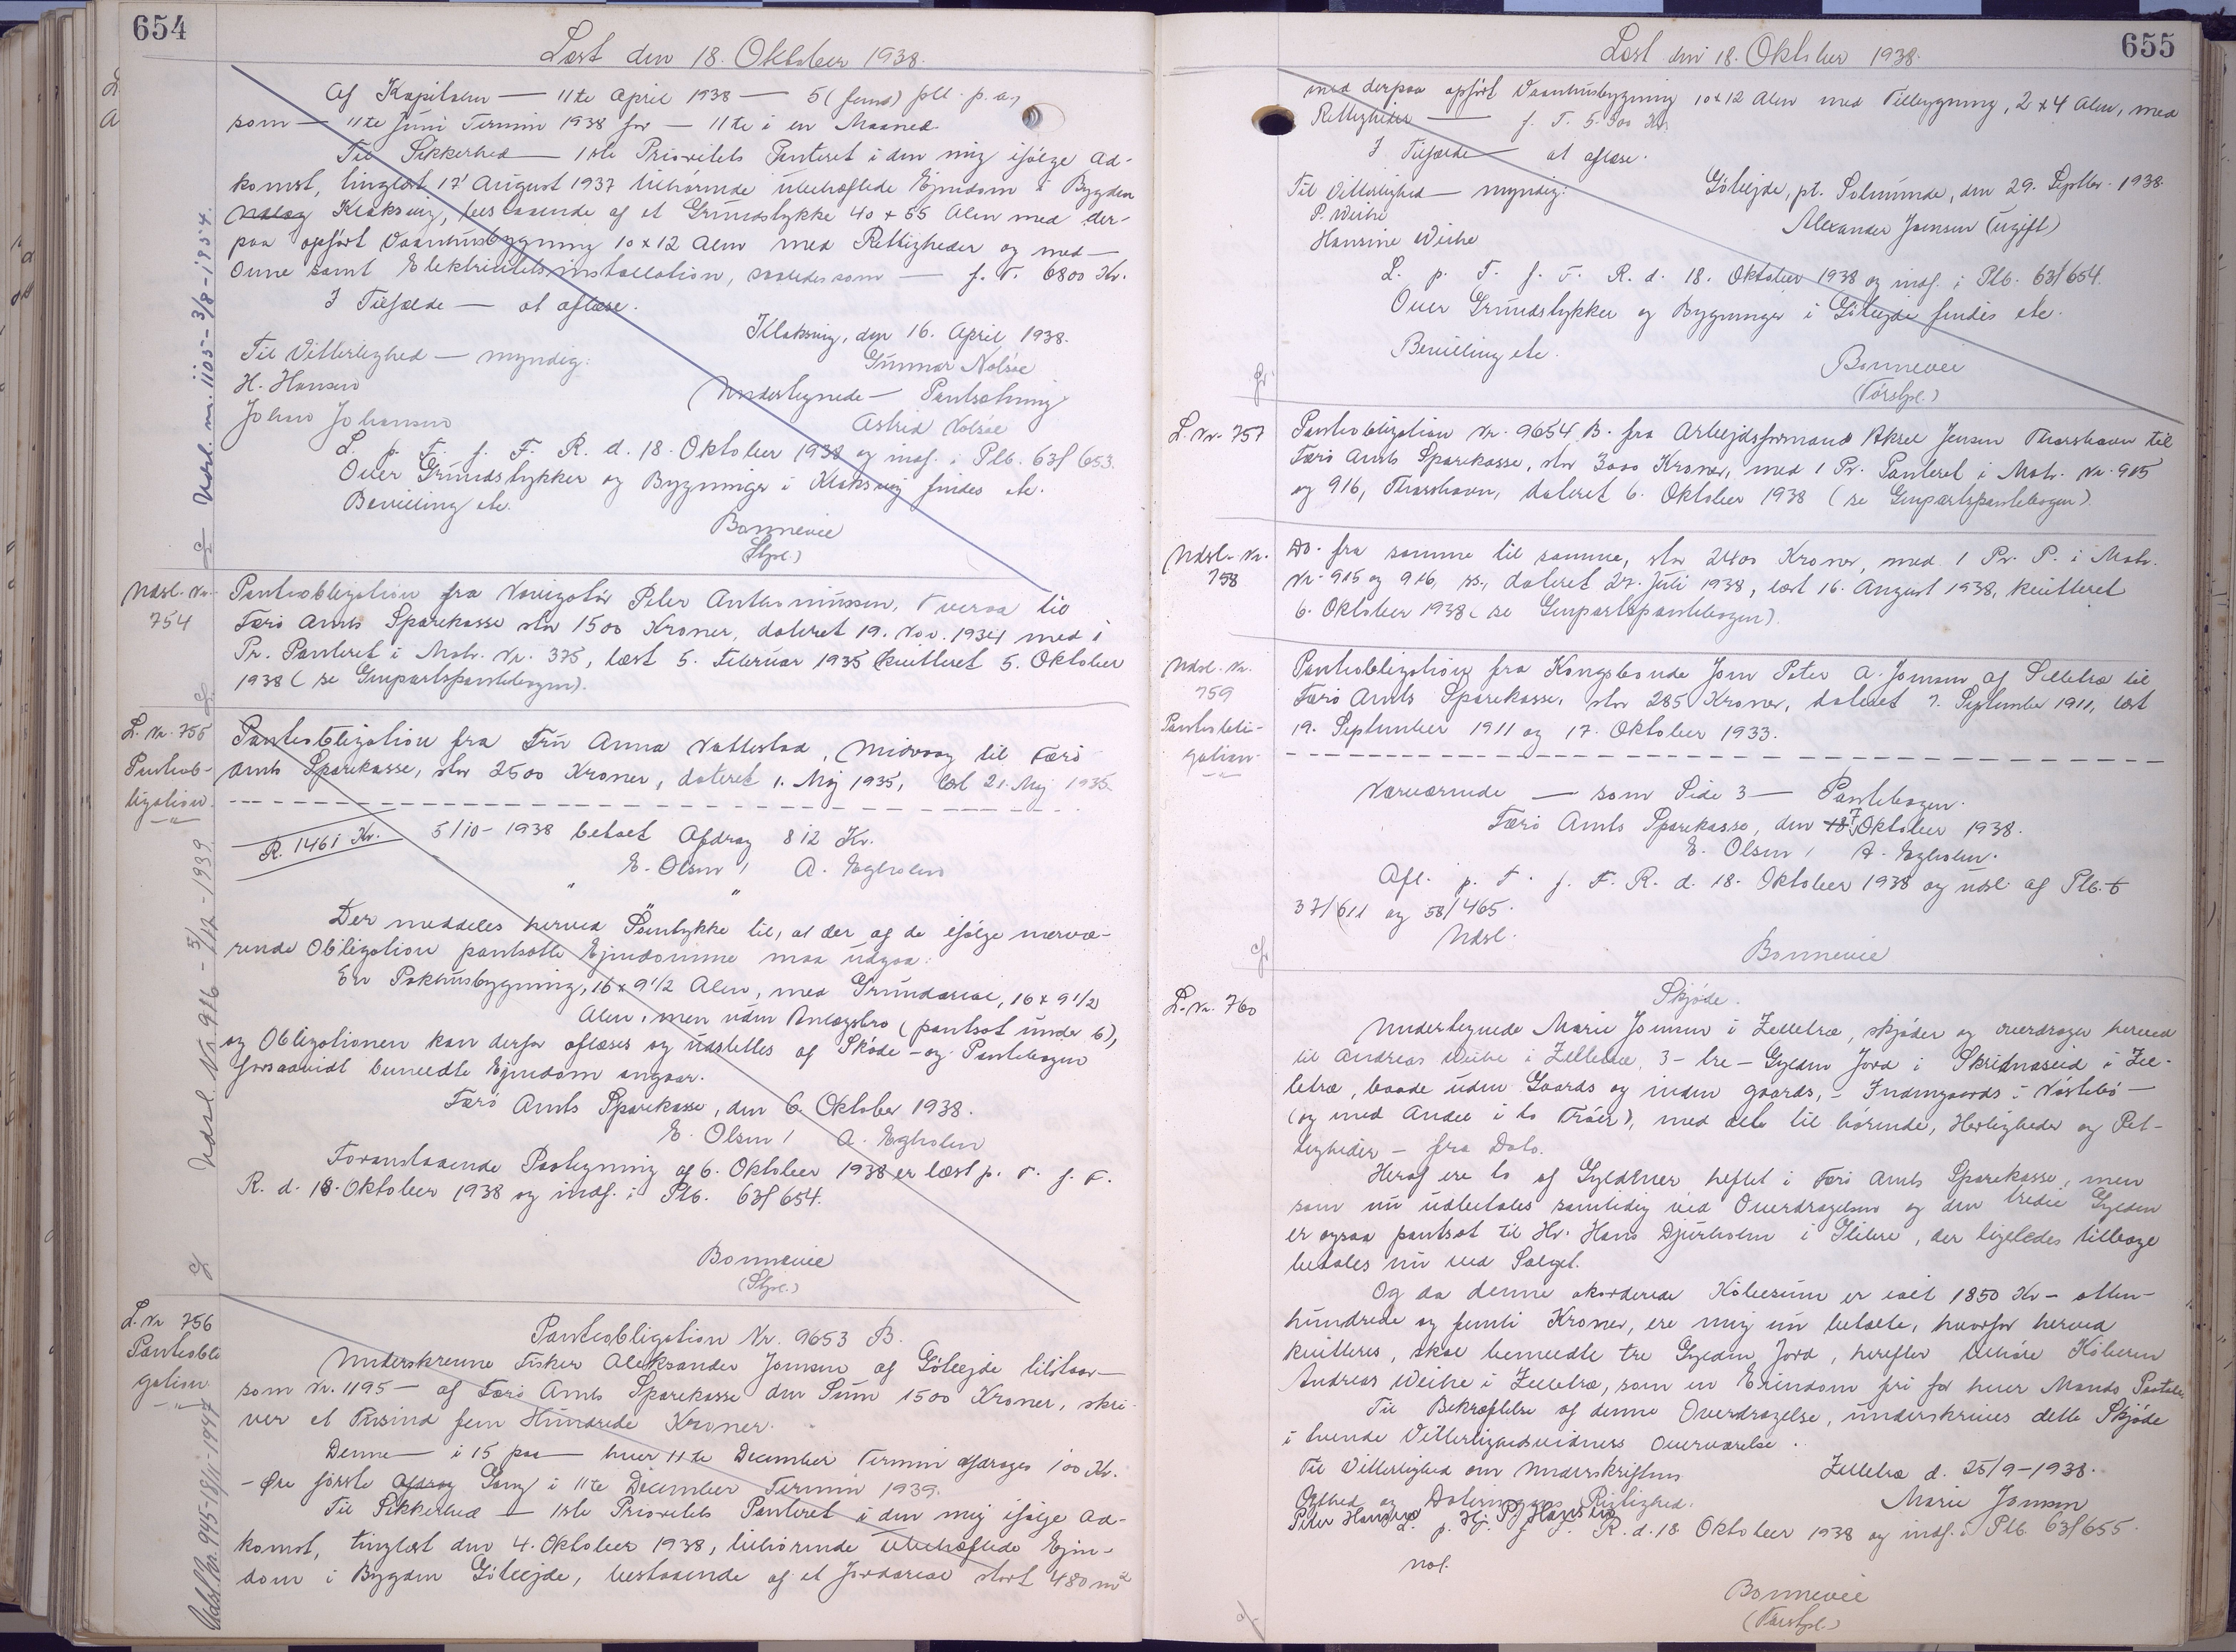 654
Læst den 18. Oktober 1938.
Af Kapitalen — 11te April 1938 — 5 (fem) pCt. p. a.,
som — 11te Juni Termin 1938 for — 11te i en Maaned.
Til Sikkerhed — 1ste Prioritets Panteret i den mig ifølge Ad-
komst, tinglæst 17' August 1937 tilhørende ubehæftede Ejendom i Bygden
Klaksvig, bestaaende af et Grundstykke 40 x 55 Alen med der-
paa opført Vaanhusbygning 10 x 12 Alen med Rettigheder og med —
Ovne samt Elektricitetsinstallation, saaledes som — f. T. 6800 Kr.
I Tilfælde — at aflæse.
Klaksvig, den 16. April, 1938.
Til Vitterlighed — myndig:
Gunnar Nolsøe
H. Hansen
Undertegnede — Pantsætning
Johan Johansen
Astrid Nolsøe
L. p. T. f. F. R. d. 18. Oktober 1938 og indf. i Plb. 63f 653.
Over Grundstykker og Bygninger i Klaksvig findes etc.
Bevilling etc.
Bonnevie
(Stpl.)
Udsl. nr. 1105 - 3/8 - 1954.
Udsl. Nr.
754
Panteobligation fra Navigatør Peter Anthoniussen, Tveraa til
Færø Amts Sparekasse stor 1500 Kroner, dateret 19. Nov. 1934 med 1
Pr. Panteret i Matr. Nr. 375, læst 5. Februar 1935 kvitteret 5. Oktober
1938 ( se Genpartspantebogen).
L. Nr. 755
Panteob-
ligation
Panteobligation fra Fru Anna Vattestad, Midvaag til Færø
Amts Sparekasse, stor 2500 Kroner, dateret 1. Maj 1935, læst 21. Maj 1935.
R. 1461 Kr. 5/10 - 1938 betalt Afdrag 812 Kr.
E. Olsen / A. Egholm
Der meddeles herved Samtykke til, at der af de ifølge nærvæ-
rende Obligation pantsatte Ejendomme maa udgaa:
En Pakhusbygning, 16 x 9 1/2 Alen, med Grundareal, 16 x 9 1/2
Alen, men uden Anlægsbro (pantsat under 6),
og Obligationen kan derfor aflæses og udslettes af Skøde- og Pantebogen
forsaavidt bemeldte Ejendom angaar.
Færø Amts Sparekasse, den 6. Oktober 1938.
E. Olsen / A. Egholm
Foranstaaende Paategning af 6. Oktober 1938 er læst p. T. f. F.
R. d. 18. Oktober 1938 og indf. i Plb. 63f 654.
Bonnevie
(Stpl.)
Udsl. Nr. 916 - 5/12 - 1939
L. Nr. 756
Panteobli
gation
Panteobligation Nr. 9653 B.
Underskrevne Fisker Aleksander Joensen af Gøtuejde tilstaar —
som Nr. 1195 — af Færø Amts Sparekasse den Sum 1500 Kroner, skri-
ver et Tusind fem Hundrede Kroner.
Denne — i 15 paa — hver 11te December Termin afdrages 100 Kr.
- Øre første Afdrag Gang i 11te December Termin 1939.
Til Sikkerhed — 1ste Prioritets Panteret i den mig ifølge Ad-
komst, tinglæst den 4. Oktober 1938, tilhørende ubehæftede Ejen-
dom i Bygden Gøtuejde, bestaaende af et Jordareal stort 480 m2
Udsl. Nr. 945 - 18/11 - 1947
655
Læst den 18. Oktober 1938.
med derpaa opført Vaanhusbygning 10 x 12 Alen med Tilbygning, 2 x 4 Alen, med
Rettigheder — f. T. 5.500 Kr.
I Tilfælde — at aflæse.
Til Vitterlighed — myndig: Gøtuejde, pt. Solmunde, den 29. Septbr. 1938.
P. Weihe
Alexander Joensen (ugift)
Hansine Weihe
L. p. T. f. F. R. d. 18. Oktober 1938 og indf. i Plb. 63f 654.
Over Grundstykker og Bygninger i Gøtuejde findes etc.
Bevilling etc.
Bonnevie
L. Nr. 757
Panteobligation Nr. 9654 B. fra Arbejdsformand Aksel Jensen Thorshavn til
Færø Amts Sparekasse, stor 3000 Kroner, med 1 Pr. Panteret i Matr. Nr. 915
og 916, Thorshavn, dateret 6. Oktober 1938 (se Genpartspantebogen).
Udsl. Nr.
758
Do. fra samme til samme, stor 2400 Kroner, med 1 Pr. P. i Matr.
Nr. 915 og 916, dateret 27. Juli 1938, læst 16. August 1938, kvitteret
6. Oktober 1938 (se Genpartspantebogen).
Udsl. Nr.
759
Panteobli-
gation
Panteobligation fra Kongsbonde Joen Peter A. Joensen af Selletræ til
Færø Amts Sparekasse, stor 285 Kroner, dateret 7. September 1911, læst
19. September 1911 og 17. Oktober 1933.
Nærværende — som Side 3 — Pantebogen.
Færø Amts Sparekasse, den 7 Oktober 1938.
E. Olsen / A. Egholm.
Afl. p. T. f. F. R. d. 18. Oktober 1938 og udsl. af Plb.
37/611 og 58/465.
Udsl.
Bonnevie
L. Nr. 760
Skjøde.
Undertegnede Marie Joensen i Zelletræ, skjøder og overdrager herved
til Andreas Weihe i Zelletræ 3 - tre - Gylden Jord i Skridnaseid i Zel-
letræ, baade uden Gaards og inden gaards, - Indengaards i Nørtebø -
(og med Andel i to Trøer), med dets til hørende, Herligheder og Ret-
tigheder - fra Dato.
Heraf ere to af Gyldener heftet i Færø Amts Sparekasse, men
som nu udbetales samtidig ved Overdragelsen og den tredie Gylden
er ogsaa pantsat til Hr. Hans Djurholm i Glibre, der ligeledes tilbage
betales nu ved Salget.
Og da denne akorderede Købesum er ialt 1850 Kr - atten-
hundrede og femti Kroner, ere mig nu betalte, hvorfor herved
kvitteres, skal bemeldte tre Gylden Jord, herefter tilhøre Køberen
Andreas Weihe i Zelletræ, som en Eiendom fri for hver Mands Paatale.
Til Bekræftelse af denne Overdragelse, underskrives dette Skjøde
i tvende Vitterlighedsvidners Overværelse.
Til Vitterlighed om Underskriftens Zelletræ d. 25/9 - 1938.
Ægthed og Dateringens Rigtighed. Marie Joensen
Peter Hansen H. P. Hansen
L. p. T. f. F. R. d. 18 Oktober 1938 og indf. i Plb. 63f 655.
Bonnevie